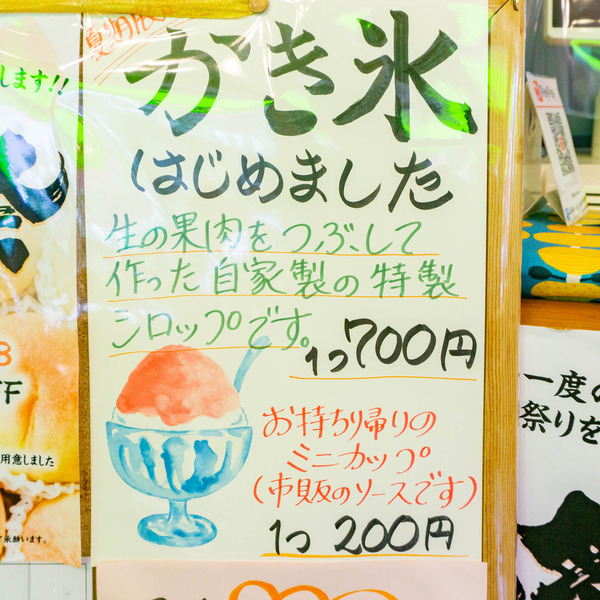 夏期限定
かき氷
はじめました
生の果肉をつぶして
作った自家製の特製
シロップです。
1つ700円
お持ち帰りの
ミニカップ
(市販のソースです)
1つ 200円
します!!
FF
用意しました
了承願います。
PayPay
一度の
祭りを